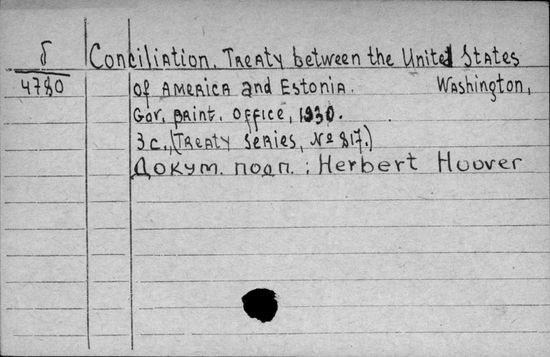 б Conciliation. Treaty between the United States
4780 of America and Estonia. Washington,
Gov. print. office, 1930.
3 с. (Treaty series, № 817.)
Докум. подп.: Herbert Hoover